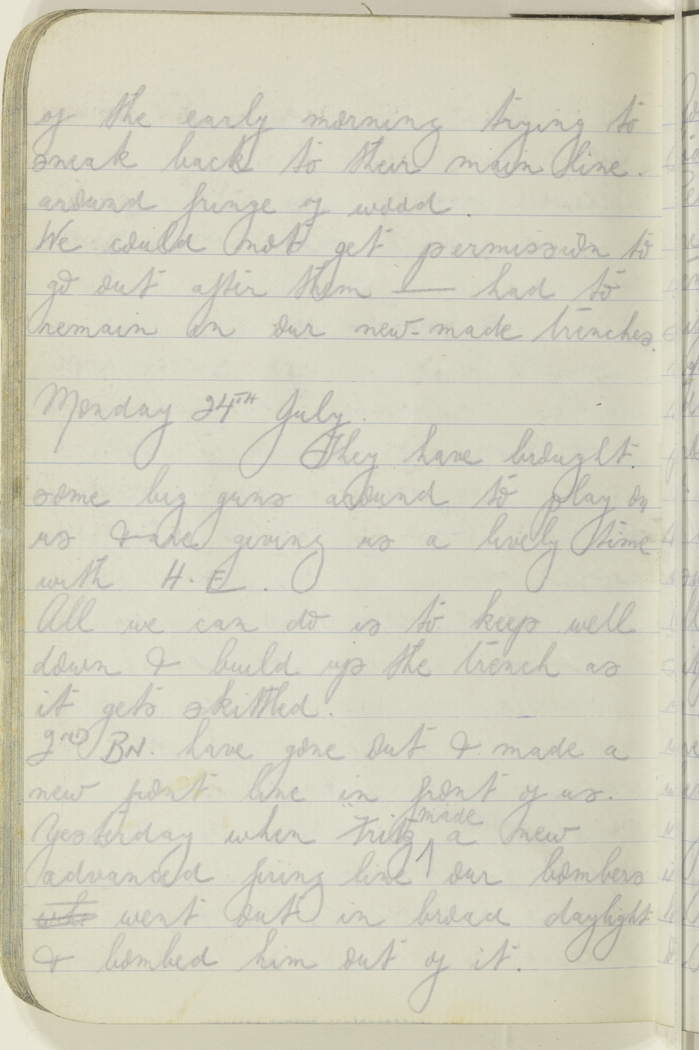 of the early morning trying to
sneak back to their main line.
around fringe of wood.
We could not get permission to
go out after them — had to
remain in our new-made trenches.
Monday 24TH July.
They have brought
some big guns around to play on
us & are giving us a lively time
with H.E.
All we can do is to keep well
down & build up the trench as
it gets skittled.
2ND BN. have gone out & made a
new front line in front of us.
Yesterday when "Fritz" made a new
advanced firing line our bombers
went out in broad daylight
& bombed him out of it.